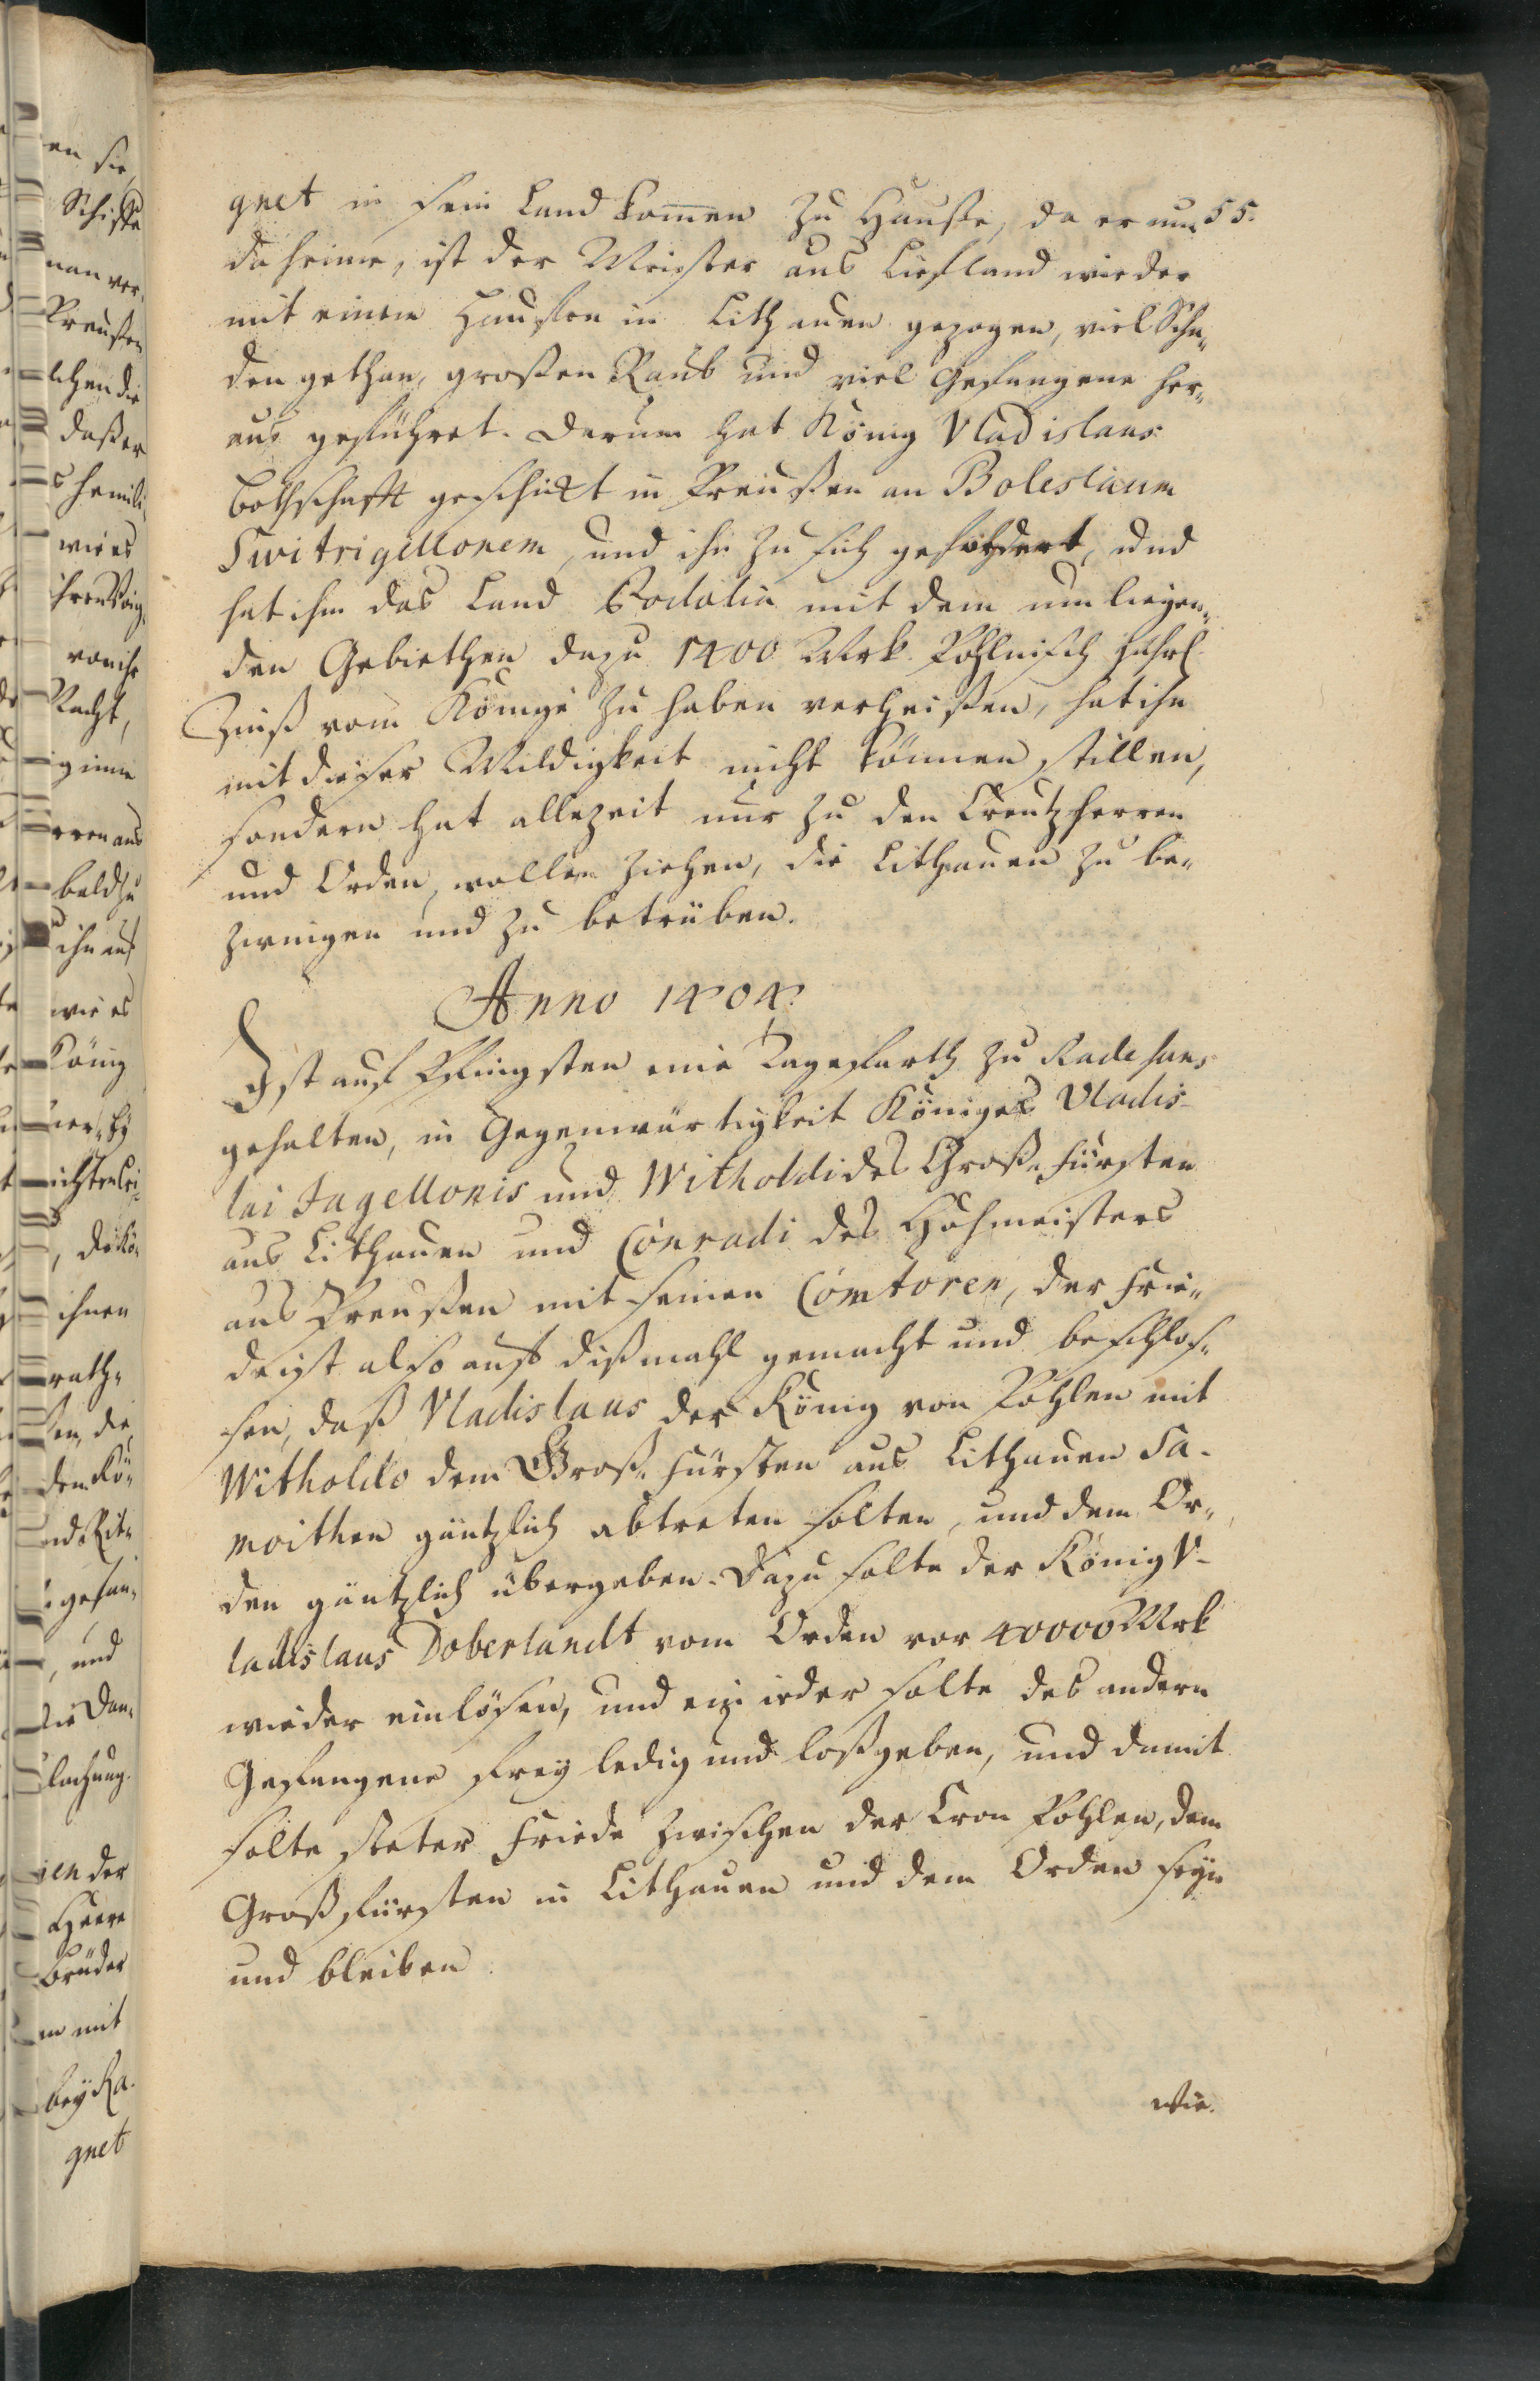 gnet in sein Land kommen zu Hauße, da er nun 55.
da heime, ist der Meister aus Liefland wieder
mit einem Hauffen in Lithauen gezogen, viel Scha-
den gethan, großen Raub und viel Gefangene her-
aus geführet. Darum hat König Vladislaus
Bothschafft geschickt in Preußen an Boleslaum
Switrigellonem, und ihn zu sich gefordert, und
hat ihm das Land Podolia mit dem umliegen-
den Gebiethen dazu 1400 Mrk. Pohlnisch Jährl.
Zinß vom Könige zu haben verheißen, hat ihn
mit dieser Mildigkeit nicht können stillen,
sondern hat allezeit nur zu den Creutzherren
und Orden, wollen ziehen, die Lithauen zu be-
zwingen und zu betrüben.
Anno 1404.
Ist auf Pfingsten eine Tagefarth zu Radehans
gehalten, in Gegenwärtigkeit Königes Vladis-
lai Jagellonis und Witholdi des Groß-Fürsten
aus Lithauen und Conradi des Hohmeisters
aus Preußen mit seinen Comtoren, der Frie-
de ist also auff dißmahl gemacht und beschlos-
sen, daß Vladislaus der König von Pohlen mit
Witholdo dem Groß-Fürsten aus Lithauen Sa-
moithen gäntzlich abtreten solten, und dem Or-
den gäntzlich übergeben. Dazu solte der König V-
ladislaus Doberlandt vom Orden vor 40000 Mrk
wieder einlösen, und ein ieder solte des andern
Gefangene frey ledig und loßgeben, und damit
solte steter Friede zwischen der Cron Pohlen, dem
Großfürsten in Lithauen und dem Orden seyn
und bleiben.
Wie.